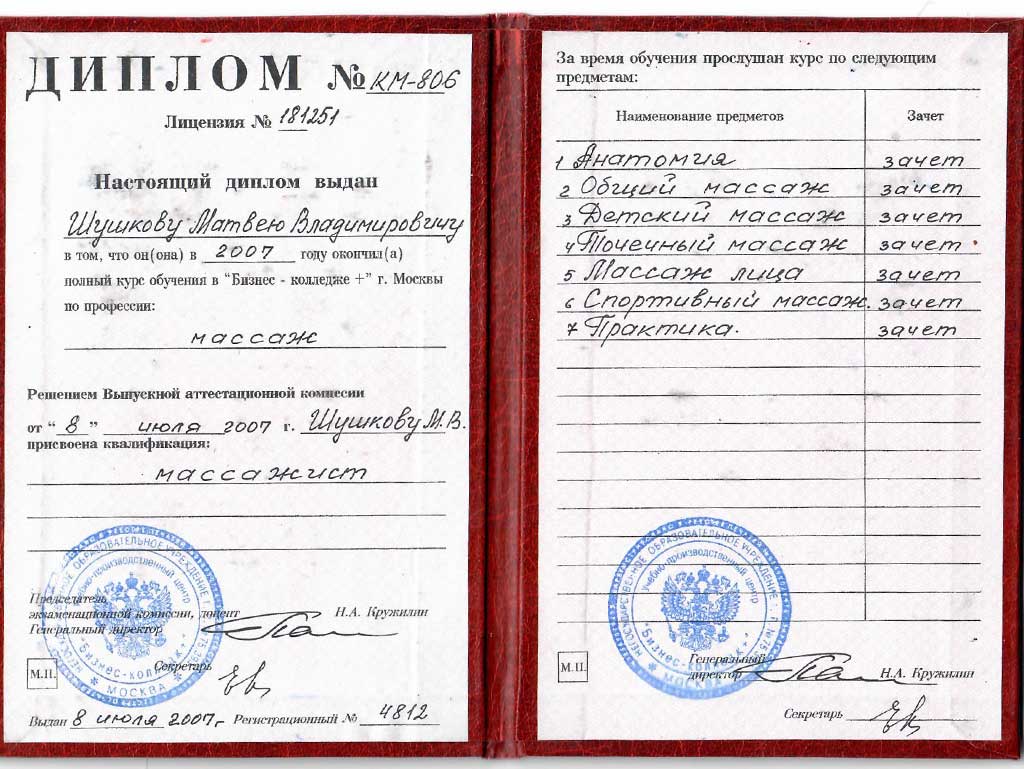 ДИПЛОМ № КМ-806
Лицензия № 181251
Настоящий диплом выдан
Шушкову Матвею Владимировичу
в том, что он(она) в 2007 году окончил(а)
полный курс обучения в "Бизнес - колледже +" г. Москвы
по профессии:
массаж
Решением Выпускной аттестационной комиссии
от "8" июля 2007 г. Шушкову М.В.
присвоена квалификация:
массажист
Председатель
экзаменационной комиссии, доцент
Генеральный директор
Н.А. Кружилин
М.П.
Секретарь
Выдан 8 июля 2007г. Регистрационный № 4812
учебно-производственный центр
"Бизнес-колледж"
МОСКВА
За время обучения прослушан курс по следующим
предметам:
Наименование предметов Зачет
1 Анатомия зачет
2 Общий массаж зачет
3 Детский массаж зачет
4 Точечный массаж зачет
5 Массаж лица зачет
6 Спортивный массаж. зачет
7 Практика. зачет
НЕГОСУДАРСТВЕННОЕ ОБРАЗОВАТЕЛЬНОЕ УЧРЕЖДЕНИЕ
Учебно-производственный центр
"Бизнес-колледж"
МОСКВА
М.П.
Генеральный
директор Н.А. Кружилин
Секретарь